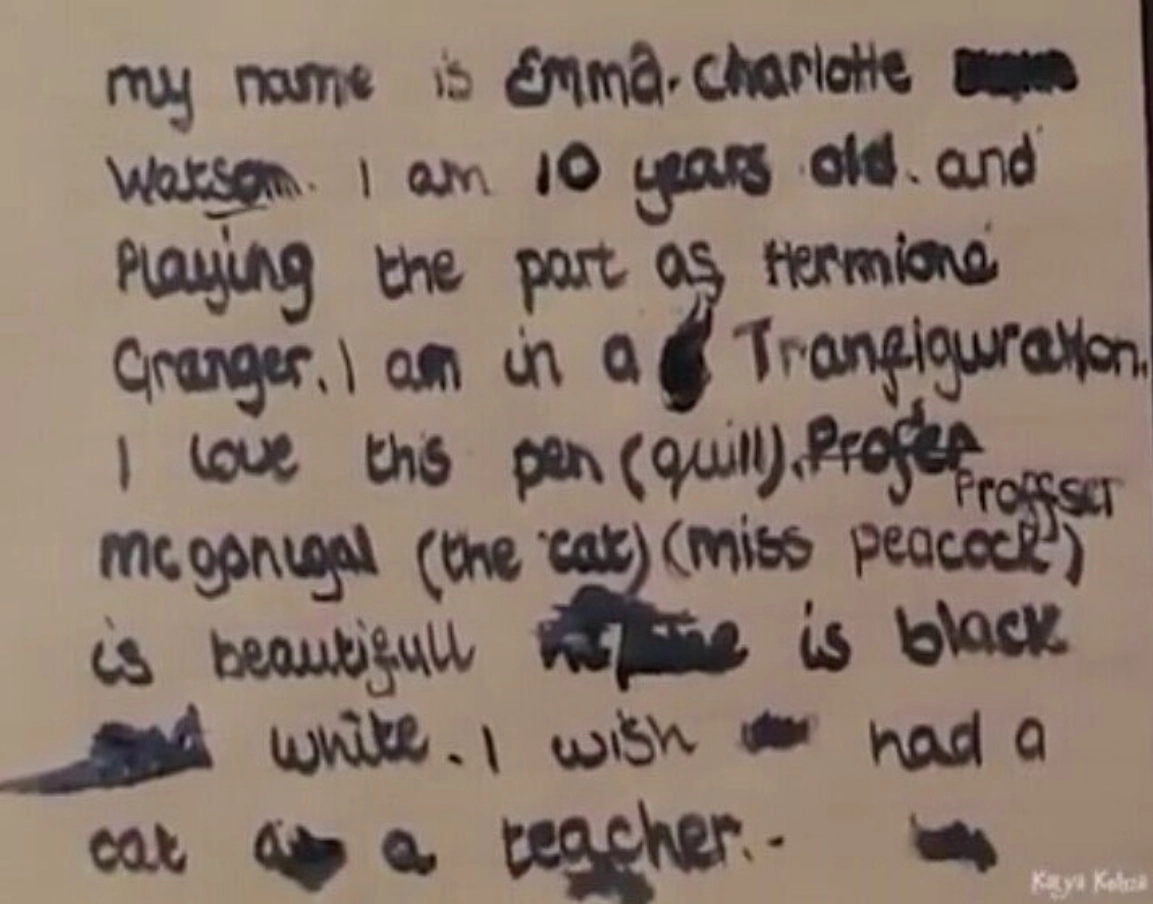 my name is Emma. Charlotte
Watson. I am 10 years old. and
Playing the part as Hermione
Granger. I am in a Tranfiguration.
I love this pen (quill). Profer
Proffser
mcgonigal (the cat) (miss peacock)
is beautifull is black
white. I wish had a
cat as a teacher.-
Katya Kolmea